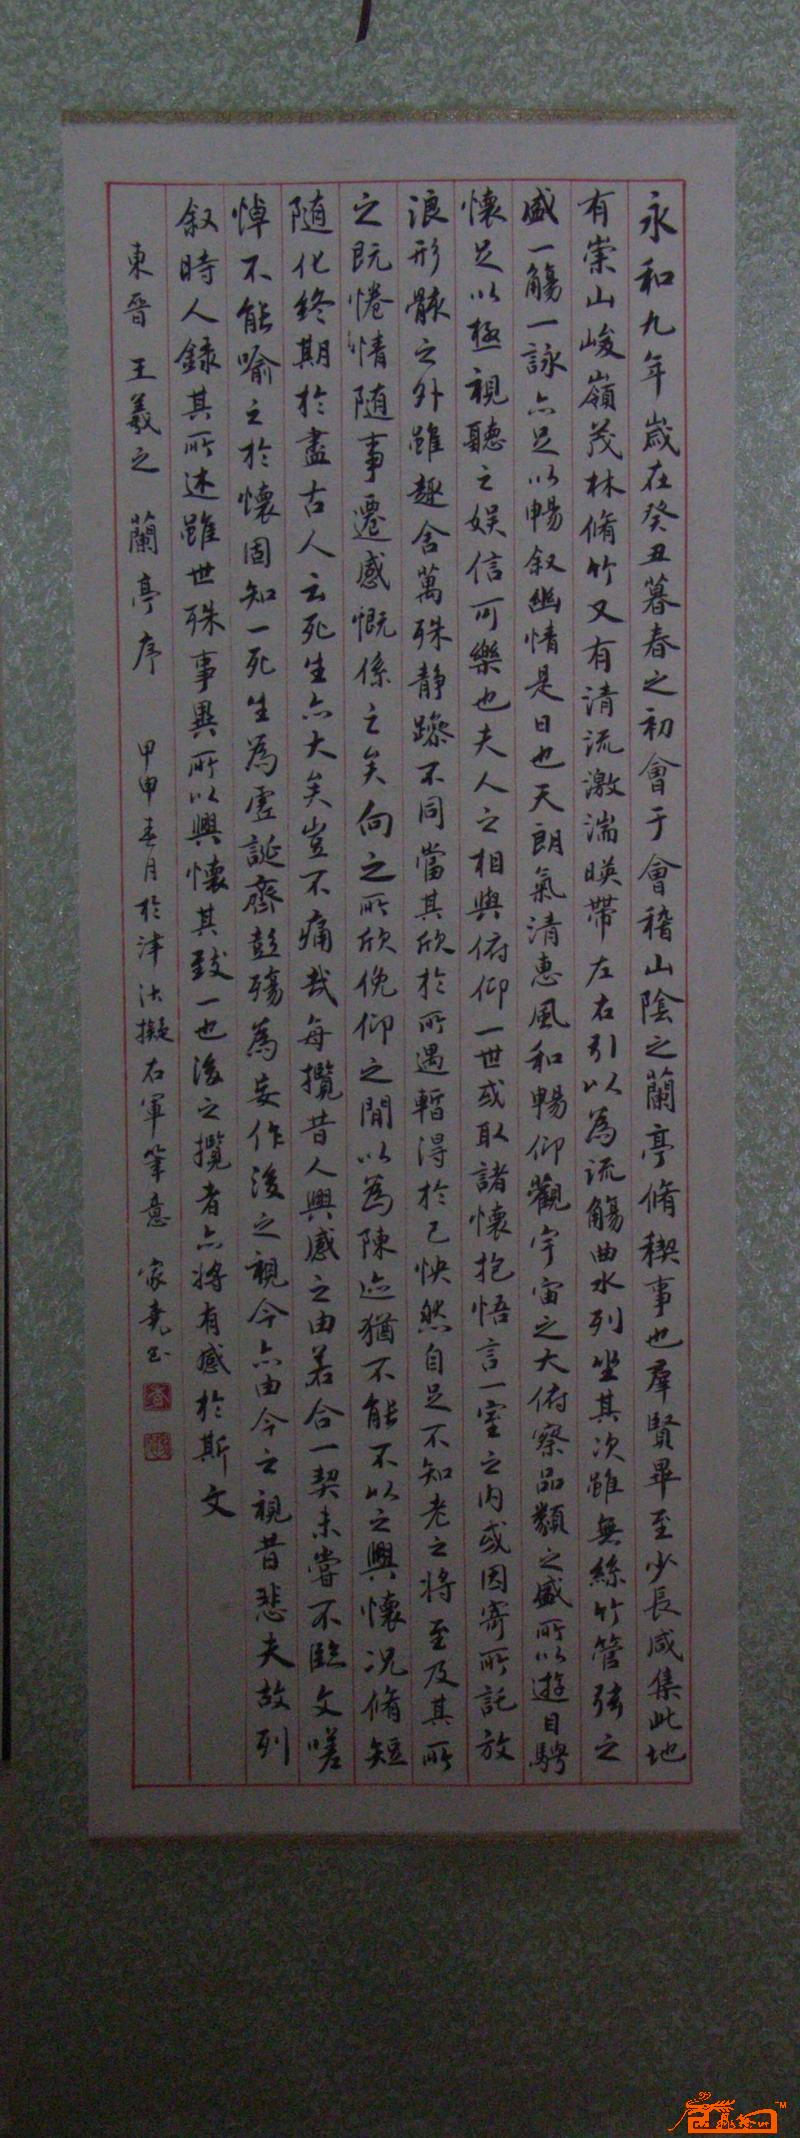 永和九年歲在癸丑暮春之初會于會稽山陰之蘭亭脩稧事也羣賢畢至少長咸集此地
有崇山峻嶺茂林脩竹又有清流激湍暎帶左右引以為流觴曲水列坐其次雖無絲竹管弦之
盛一觴一詠亦足以暢叙幽情是日也天朗氣清惠風和暢仰觀宇宙之大俯察品類之盛所以遊目騁
懷足以極視聽之娱信可樂也夫人之相與俯仰一世或取諸懷抱悟言一室之内或因寄所託放
浪形骸之外雖趣舍萬殊静躁不同當其欣於所遇暫得於己怏然自足不知老之將至及其所
之既惓情随事遷感慨係之矣向之所欣俛仰之閒以為陳迹猶不能不以之興懷况脩短
随化終期於盡古人云死生亦大矣豈不痛哉每攬昔人興感之由若合一契未嘗不臨文嗟
悼不能喻之於懷固知一死生為虚誕齊彭殤為妄作後之視今亦由今之視昔悲夫故列
叙時人録其所述雖世殊事異所以興懷其致一也後之攬者亦將有感於斯文
東晉王羲之 蘭亭序 甲申春月於津沽擬右軍筆意 家堯书